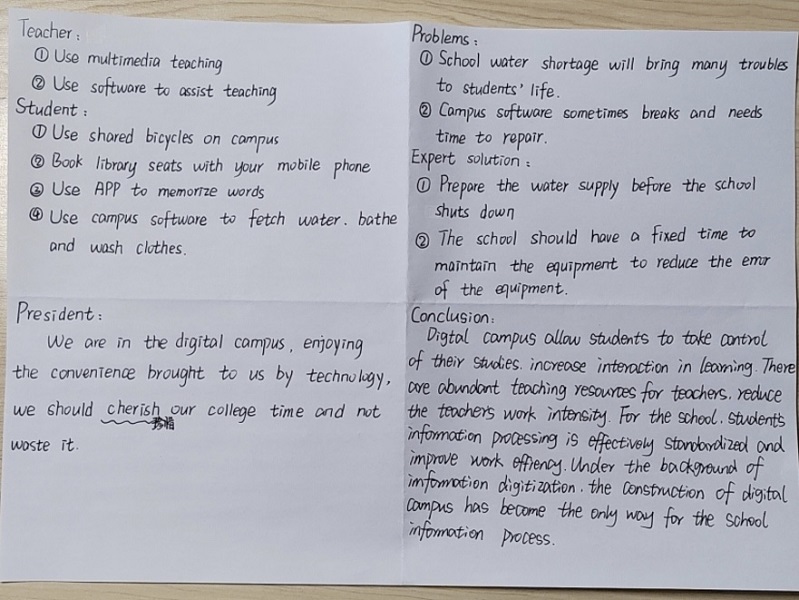 Teacher:
① Use multimedia teaching
② Use software to assist teaching
Student:
① Use shared bicycles on campus
② Book library seats with your mobile phone
③ Use APP to memorize words
④ Use campus software to fetch water. bathe
and wash clothes.
Problems:
① School water shortage will bring many troubles
to students' life.
② Campus software sometimes breaks and needs
time to repair.
Expert solution:
① Prepare the water supply before the school
shuts down
② The school should have a fixed time to
maintain the equipment to reduce the error
of the equipment.
President:
We are in the digital campus, enjoying
the convenience brought to us by technology,
we should cherish our college time and not
waste it.
珍惜
Conclusion:
Digtal campus allow students to take control
of their studies. increase interaction in learning. There
are abundant teaching resources for teachers. reduce
the teachers work intensity. For the school. students
information processing is effectively standardized and
improve work effiency. Under the background of
imformation digitization. the construction of digital
campus has become the only way for the school
information process.